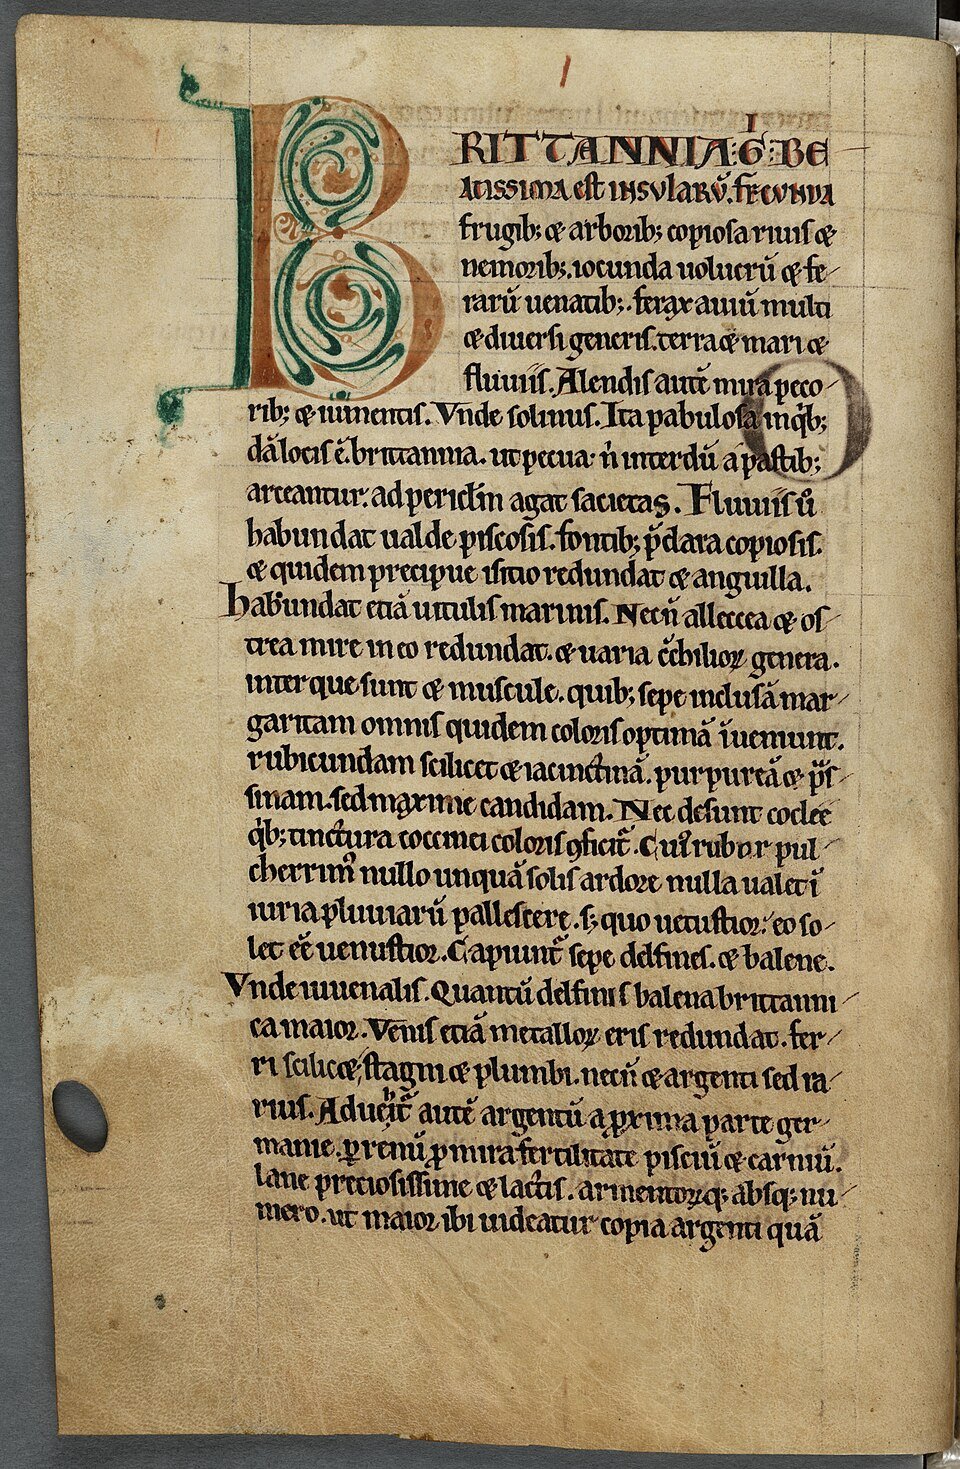 BRITTANNIA: gͥ: BE
ATISSIMA est INSVLARV̄. FECVNDA
frugib; & arborib; copiosa riuis &
nemorib;. iocunda uolucrū & fe-
rarū uenatib;. ferax auiū multi
& diuersi generis. terra & mari &
fluuiis. Alendis autē mira peco-
rib; & iumentis. Vnde solinus. Ita pabulosa inq̇b;
dā locis ē. brittannia. ut pecua. n̄ interdū a pastib;
arceantur. ad pericłm agat sacietas. Fluuiis ů
habundat ualde piscosis. fontib; p̄clara copiosis.
& quidem precipue isitio redundat & anguilla.
Habundat etiā uitulis marinis. Necn̄ alleccea & os-
trea mire in eo redundat. & uaria c̄chilioꝝ genera.
inter que sunt & muscule. quib; sepe inclusā mar-
garitam omnis quidem coloris optimā īueniunt.
rubicundam scilicet & iacinctinā. purpureā & p̄s-
sinam. sed maxime candidam. Nec desunt coclee
q̇b; tinctura coccinei coloris ꝯficit̃. Cuiꝰ rubor pul-
cherrimꝰ nullo unquā solis ardore nulla ualet ī
iuria pluuiarū pallescere. s; quo uetustior. eo so-
let eē uenustior. Capiunt̃ sepe delfines. & balene.
Vnde iuuenalis. Quantū delfinis balena brittanni-
ca maior. Venis etiā metalloꝝ eris redundat. fer-
ri scilic&, stagni & plumbi. necn̄ & argenti sed ra-
rius. Aducͪit̃ autē argentū a ꝓxima parte ger-
manie. ꝑ renū ꝓ mira fertilitate pisciū & carniū.
lane preciosissime & lactis. armentoꝝq; absq; nu-
mero. ut maior ibi uideatur copia argenti quā